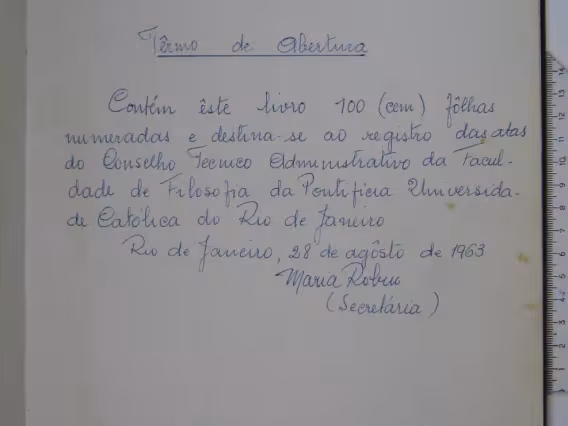 Têrmo de Abertura
Contém êste livro 100 (cem) fôlhas
numeradas e destina-se ao registro das atas
do Conselho Tecnico Administrativo da Facul-
dade de Filosofia da Pontificia Universida-
de Católica do Rio de Janeiro
Rio de Janeiro, 28 de agôsto de 1963
Maria
(Secretária)